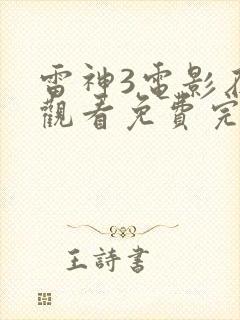 雷神3電影
觀看免費完
王詩書